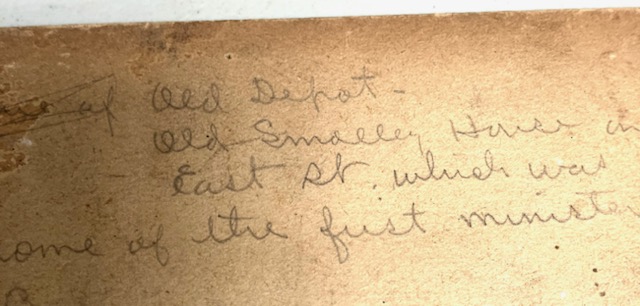 of Old Depot -
Old Smalley House on
East St. which was
home of the first minister